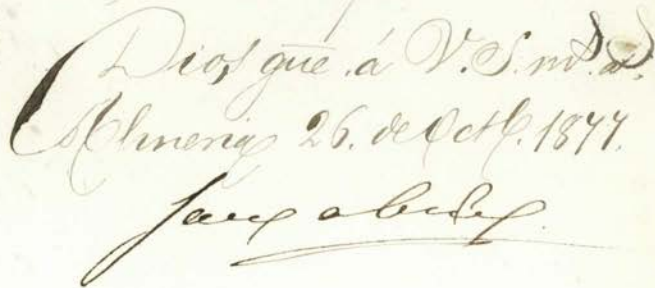 Dios gue. á V. S. ms. as.
Almeria 26. de Octe. 1877.